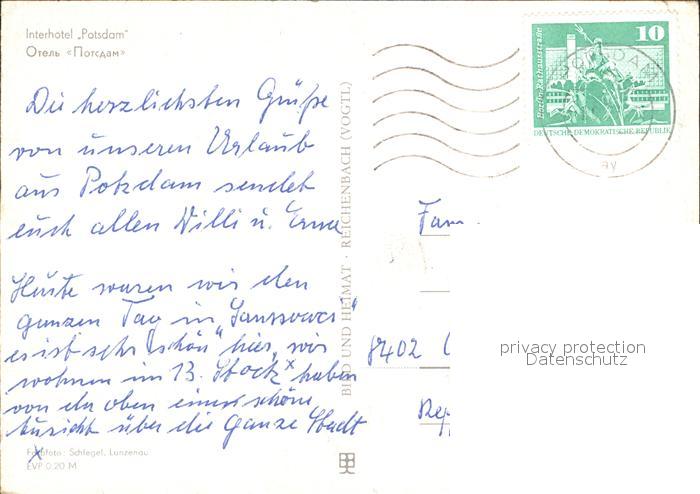 Interhotel „Potsdam"
Отель «Потсдам»
Die herzlichsten Grüße
von unseren Urlaub
aus Potzdam sendet
euch allen Willi u. Erna
Heute waren wir den
ganzen Tag in „Sanssouci"
es ist sehr schön hier, wir
wohnen im 13. Stock x haben
von da oben einen schöne
über die Ganze Stadt
x
Farbfoto: Schlegel, Lunzenau
EVP 0.20 M
BILD UND HEIMAT · REICHENBACH (VOGTL)
10
Berlin, Rathausstraße
DEUTSCHE DEMOKRATISCHE REPUBLIK
POTSDAM
ay
Fam.
8402
privacy protection
Datenschutz